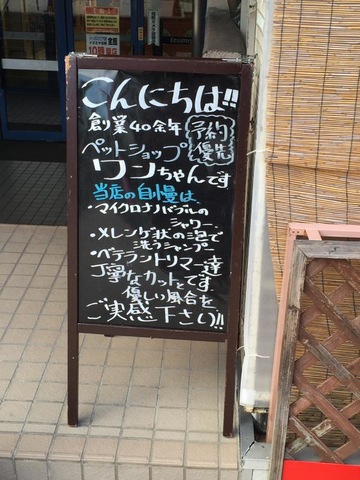 こんにちは!!
創業40余年
予約
優先
ペットショップ
ワンちゃんです
当店の自慢は、
・マイクロナノバブルの
シャワー
・メレンゲ状の泡で
洗うシャンプー
・ベテラントリマー達
丁寧なカットとです
優しい風合を
ご実感下さい!!